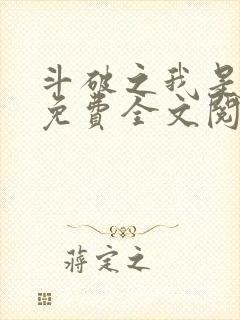 斗破之我是
免费全文阅
蒋定之